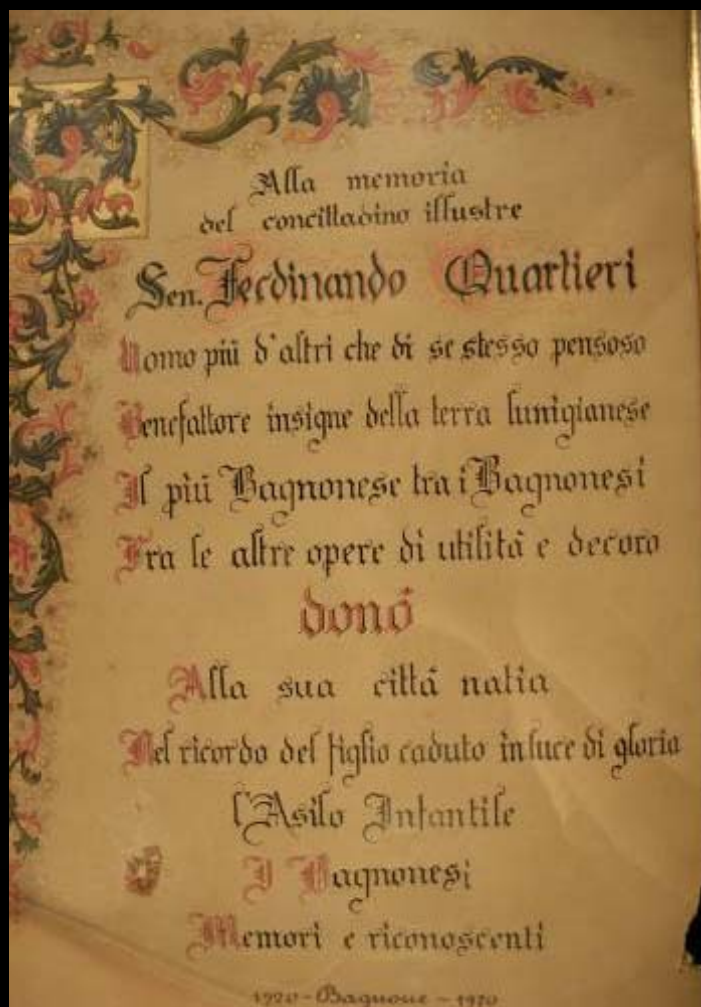 Alla memoria
del concittadino illustre
Sen. Ferdinando Quartieri
Uomo piú d'altri che di se stesso pensoso
Benefattore insigne della terra lunigianese
Il piú Bagnonese tra i Bagnonesi
Fra le altre opere di utilitá e decoro
donó
Alla sua cittá natia
Nel ricordo del figlio caduto in luce di gloria
l'Asilo Infantile
I Bagnonesi
Memori e riconoscenti
1920 - Bagnone - 1970